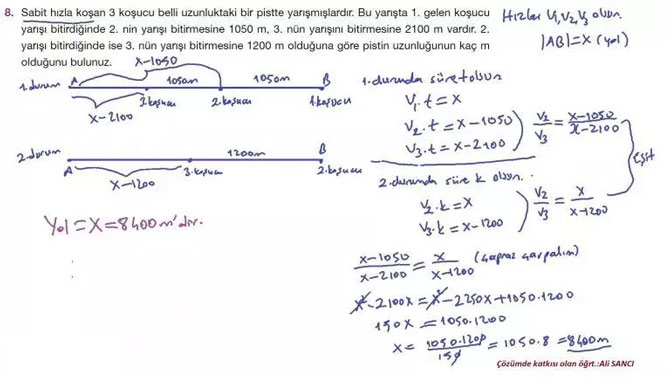 8. Sabit hızla koşan 3 koşucu belli uzunluktaki bir pistte yarışmışlardır. Bu yarışta 1. gelen koşucu
yarışı bitirdiğinde 2. nin yarışı bitirmesine 1050 m, 3. nün yarışını bitirmesine 2100 m vardır. 2.
yarışı bitirdiğinde ise 3. nün yarışı bitirmesine 1200 m olduğuna göre pistin uzunluğunun kaç m
olduğunu bulunuz.
Hızlar V₁,V₂,V₃ olsun.
|AB|=X (yol)
X-1050
1.durum A 1050m 1050m B
2.koşucu 1.koşucu
3.koşucu
X-2100
2.durum A 1200m B
3.koşucu 2.koşucu
X-1200
Yol=X=8400m'dir.
1.durumda süre t olsun
V₁.t=X
V₂.t=X-1050
V₃.t=X-2100
V₂/V₃=X-1050/X-2100
eşit
2.durumda süre k olsun.
V₂.k=X
V₃.k=X-1200
V₂/V₃=X/X-1200
X-1050/X-2100=X/X-1200 (çapraz çarpalım)
X²-2100X=X²-2250X+1050.1200
150X=1050.1200
X=1050.1200/150=1050.8=8400m
Çözümde katkısı olan öğrt.:Ali SANCI